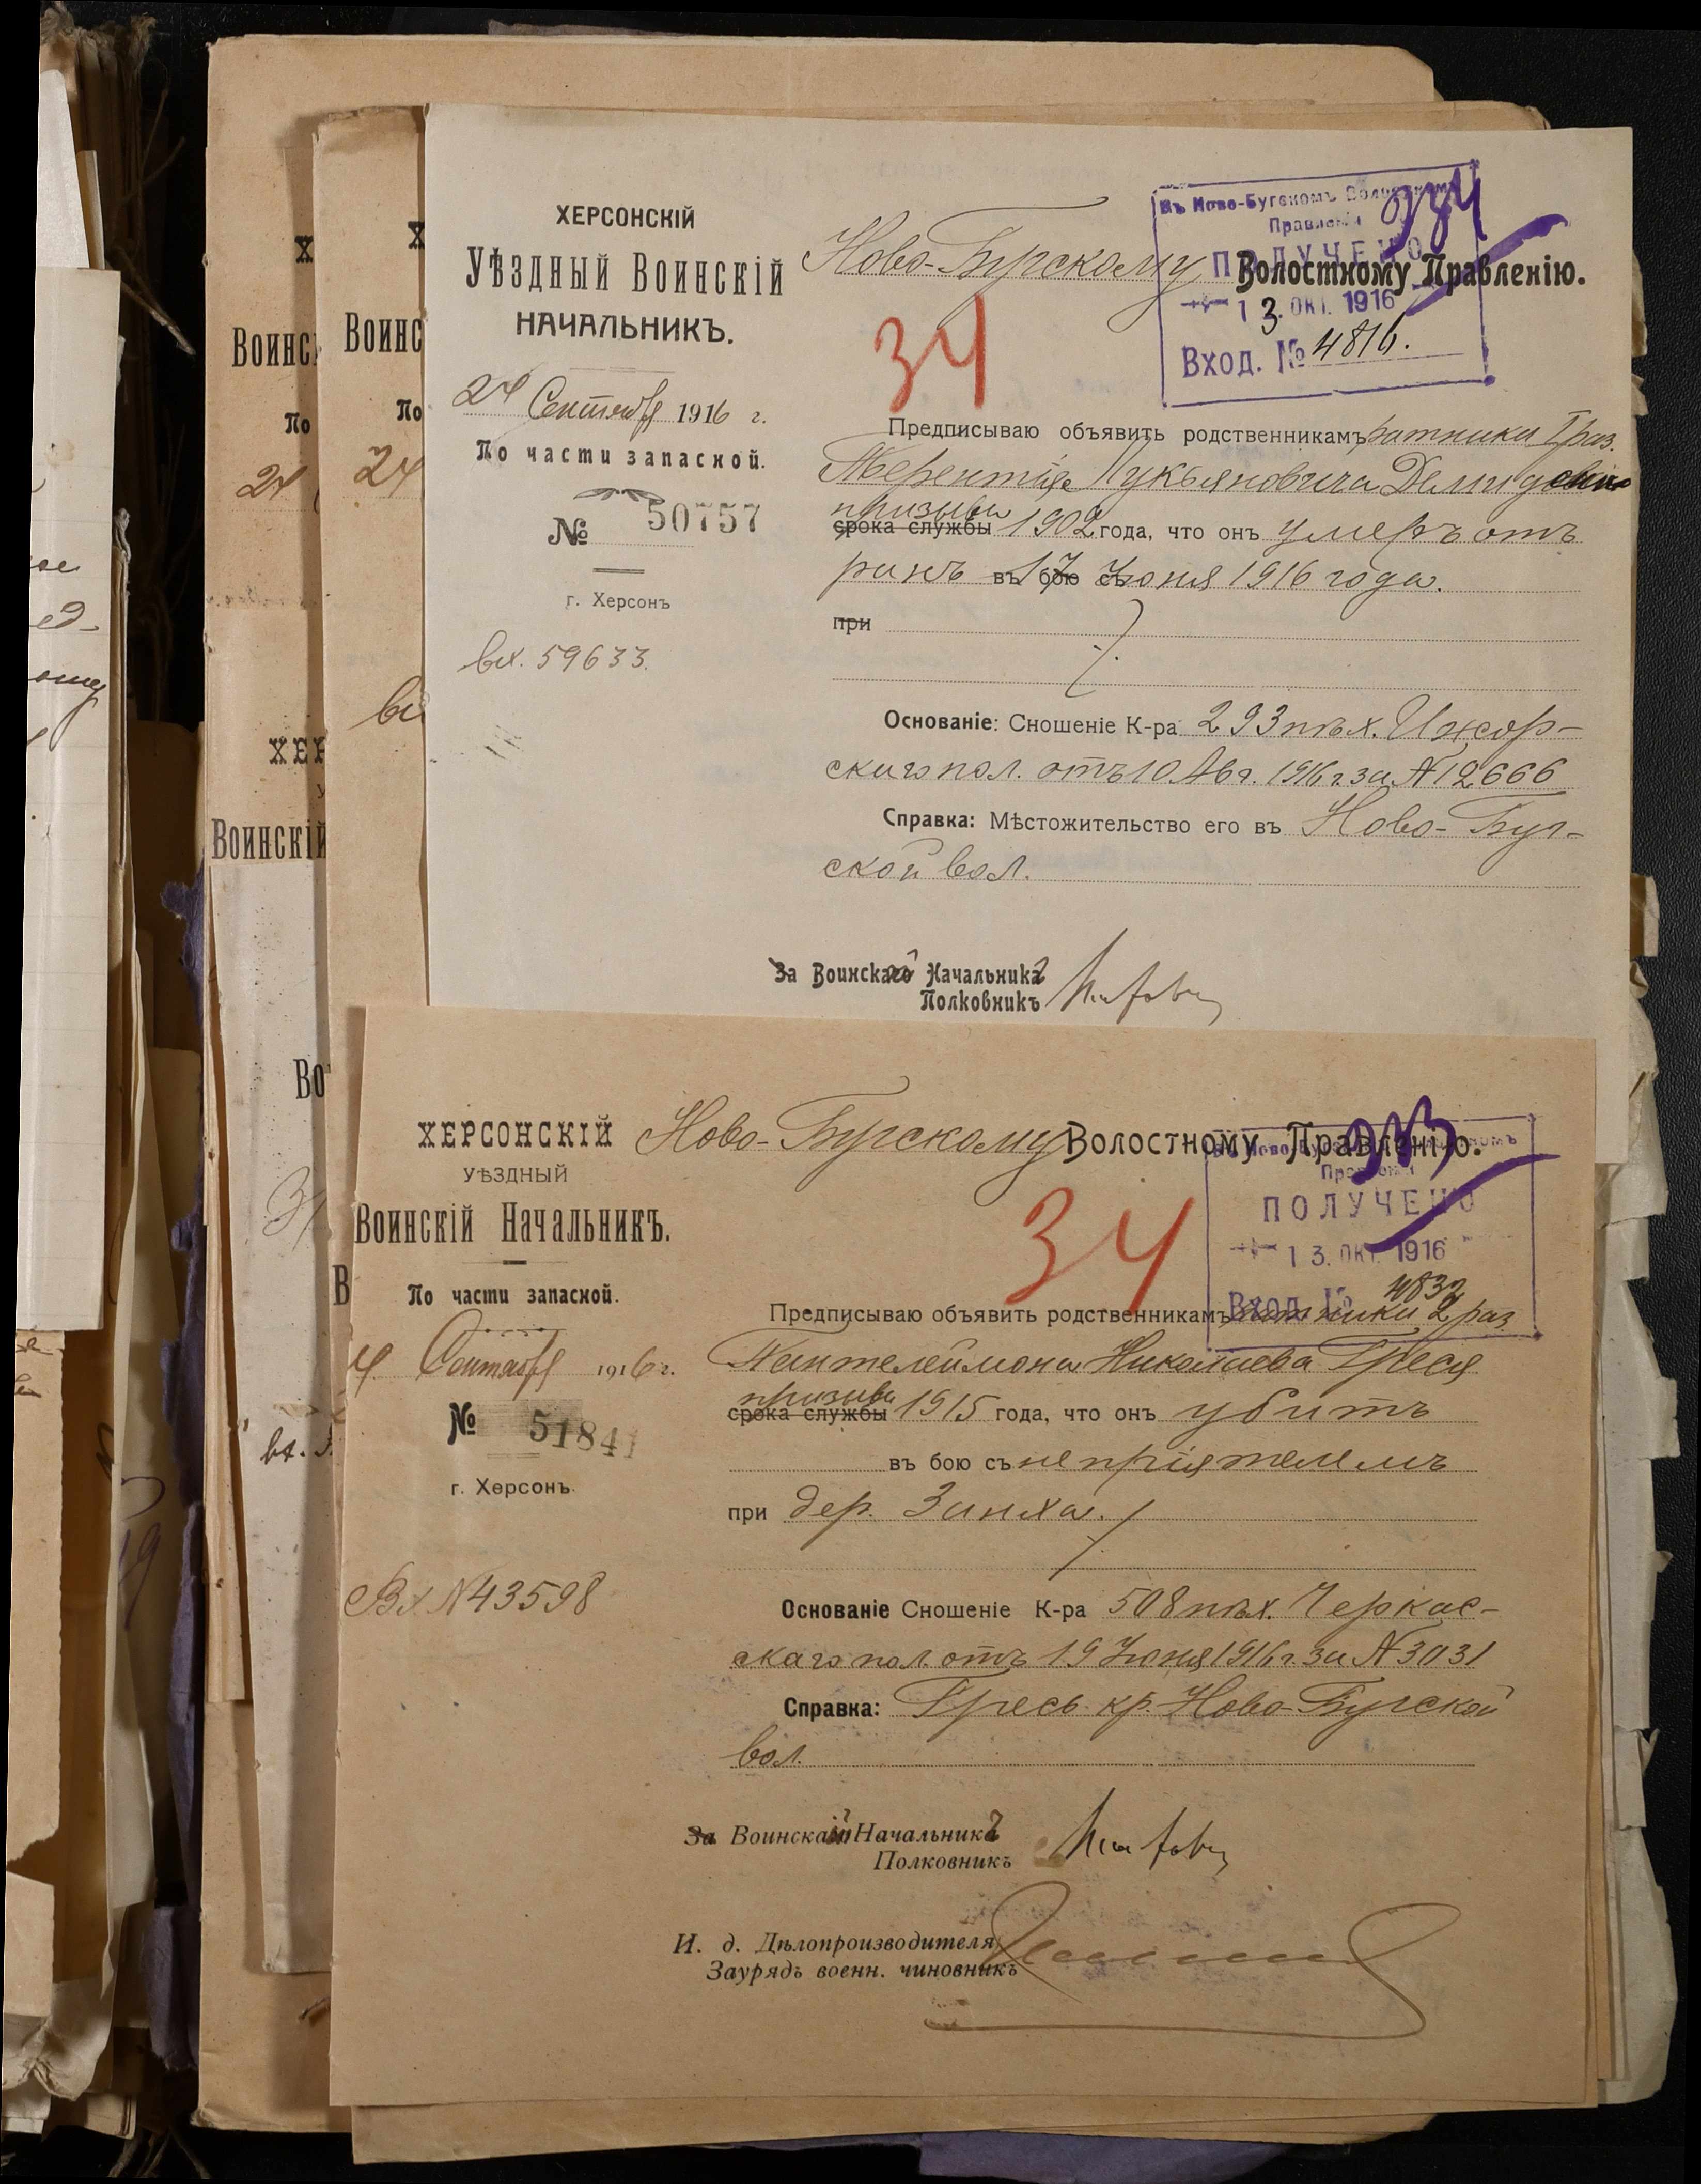 ХЕРСОНСКІЙ
УѢЗДНЫЙ ВОИНСКІЙ
НАЧАЛЬНИКЪ.
24 Сентября 1916 г.
По части запасной.
№ 50757
г. Херсонъ
вх. 59633.
Ново-Бугскому Волостному Правленію.
Въ Ново-Бугскомъ Волостномъ
Правленіи
ПОЛУЧЕНО
13. ОКТ. 1916
Вход. № 4816.
34
Предписываю объявить родственникамъ ратника 1 раз.
Терентія Лукьяновича Демиденко
призыва
срока службы 1902 года, что онъ умеръ отъ
ранъ въ бою съ 17 Іюня 1916 года.
при
Основаніе: Сношеніе К-ра 293 пѣх. Ижор-
скаго пол. отъ 10 Авг. 1916 г. за № 12666
Справка: Мѣстожительство его въ Ново-Буг-
ской вол.
За Воинскаго Начальника
Полковникъ
ХЕРСОНСКІЙ
УѢЗДНЫЙ
ВОИНСКІЙ НАЧАЛЬНИКЪ.
По части запасной.
4 Сентября 1916 г.
№ 51841
г. Херсонъ.
Вх № 43598
Ново-Бугскому Волостному Правленію.
Правленіи
ПОЛУЧЕНО
13. ОКТ. 1916
Вход. №
34
Предписываю объявить родственникамъ ратника 2 раз
Пантелеймона Николаева Греся
призыва
срока службы 1915 года, что онъ убитъ
въ бою съ непріятелемъ
при дер. Занха.
Основаніе Сношеніе К-ра 508 пѣх. Черкас-
скаго пол. отъ 19 Іюня 1916 г. за № 3031
Справка: Гресь кр. Ново-Бугской
вол.
За Воинскаго Начальника
Полковникъ
И. д. Дѣлопроизводителя
Заурядъ военн. чиновникъ